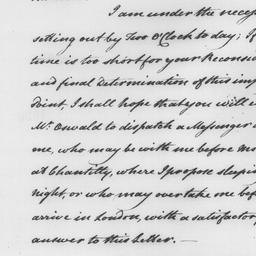 I am under the neces
setting out by Two O'Clock to day; If
time is too short for your Reconsi
and final Determination of this imp
Point, I shall hope that you will e
Mr. Oswald to dispatch a Messenger a
me, who may be with me before Mo
at Chantilly, where I propose sleepin
night, or who may overtake me bef
arrive in London, with a satisfactor
answer to this Letter. —